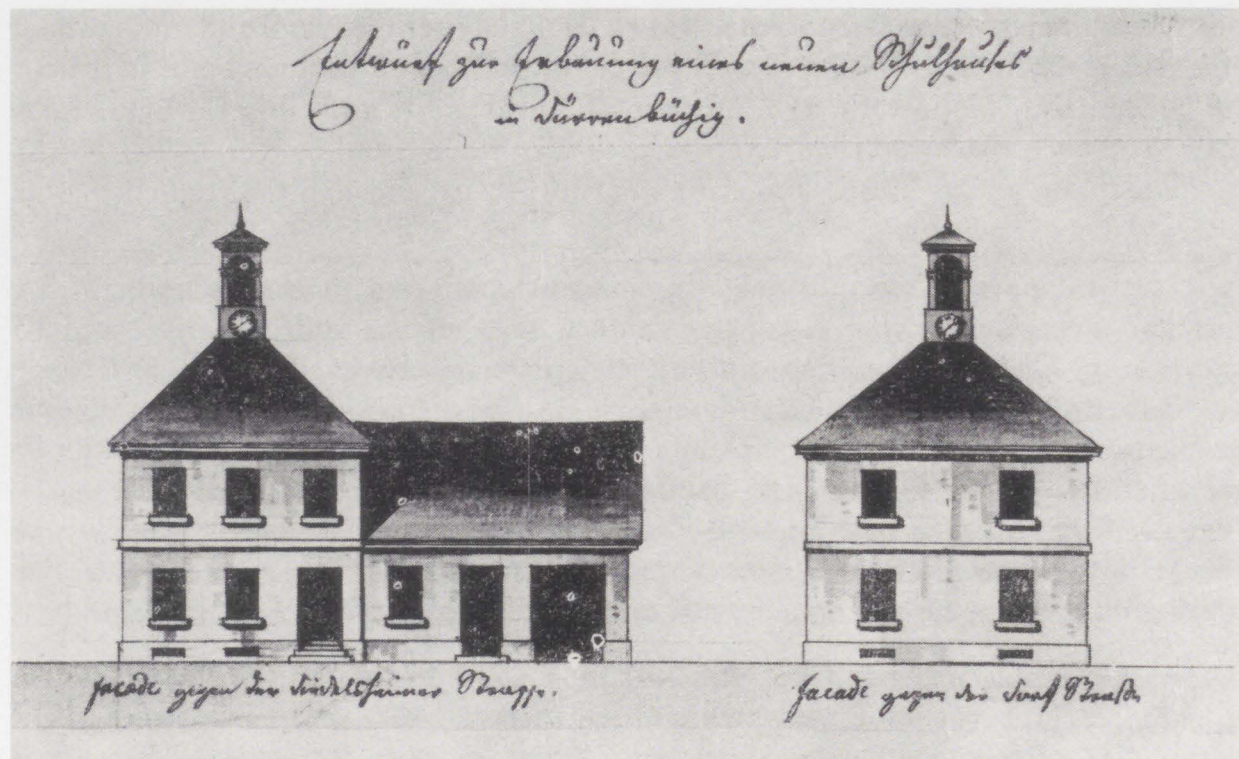 Entwurf zur Erbauung eines neuen Schulhauses
in Dürrenbüchig.
facade gegen der Diedelsheimer Strasse.
facade gegen die Dorf Straße